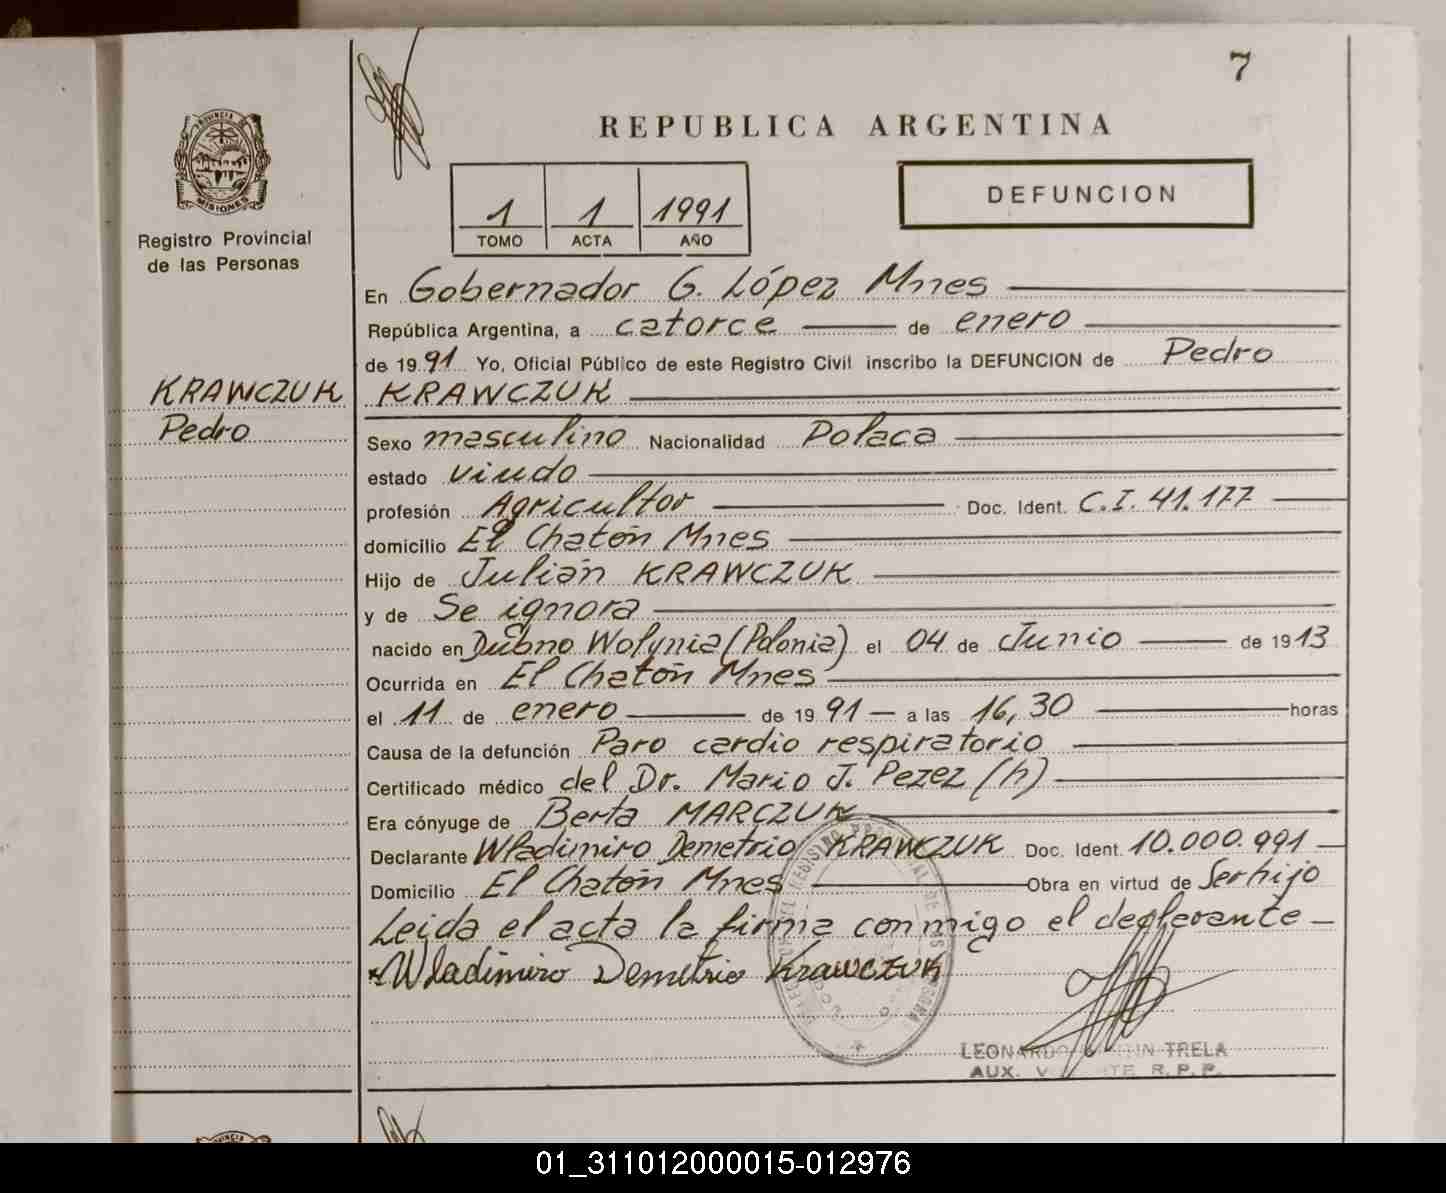 7
REPUBLICA ARGENTINA
PROVINCIA DE
MISIONES
Registro Provincial
de las Personas
1 1 1991
TOMO ACTA AÑO
DEFUNCION
En Gobernador G. López Mnes
República Argentina, a catorce de enero
de 1991 Yo, Oficial Público de este Registro Civil inscribo la DEFUNCION de Pedro
KRAWCZUK
KRAWCZUK
Pedro
Sexo masculino Nacionalidad Polaca
estado viudo
profesión Agricultor Doc. Ident. C.I. 41.177
domicilio El Chatón Mnes
Hijo de Julián KRAWCZUK
y de Se ignora
nacido en Dubno Wolynia (Polonia) el 04 de Junio de 1913
Ocurrida en El Chatón Mnes
el 11 de enero de 1991 a las 16,30 horas
Causa de la defunción Paro cardio respiratorio
Certificado médico del Dr. Mario J. Pezez (h)
Era cónyuge de Berta MARCZUK
Declarante Wladimiro Demetrio KRAWCZUK Doc. Ident. 10.000.991
Domicilio El Chatón Mnes Obra en virtud de Ser hijo
Leida el acta la firma conmigo el declarante
Wladimiro Demetrio Krawczuk
LEONARDO TRELA
AUX. R.P.P.
01_311012000015-012976